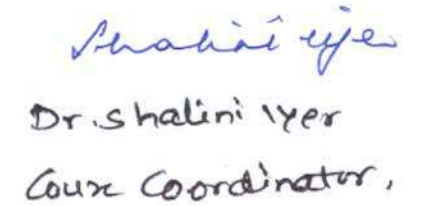 Shalini Iyer
Dr. Shalini Iyer
Course Coordinator,